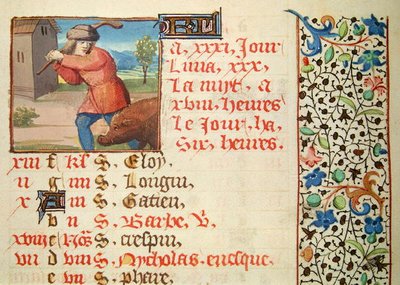 KL
A. xxxi. Jour
Luna. xxx.
La nuyt. a
xviii. Heures
Le Jour. ha.
Six. heures.
xiii f kl S. Eloy.
ii g iiii S. Longin.
x A iii S. Gatien.
b ii S. Barbe. V.
xviii c Nõs S. crespin.
vii d viii S. Nycholas. euesque.
e vii S. phare.